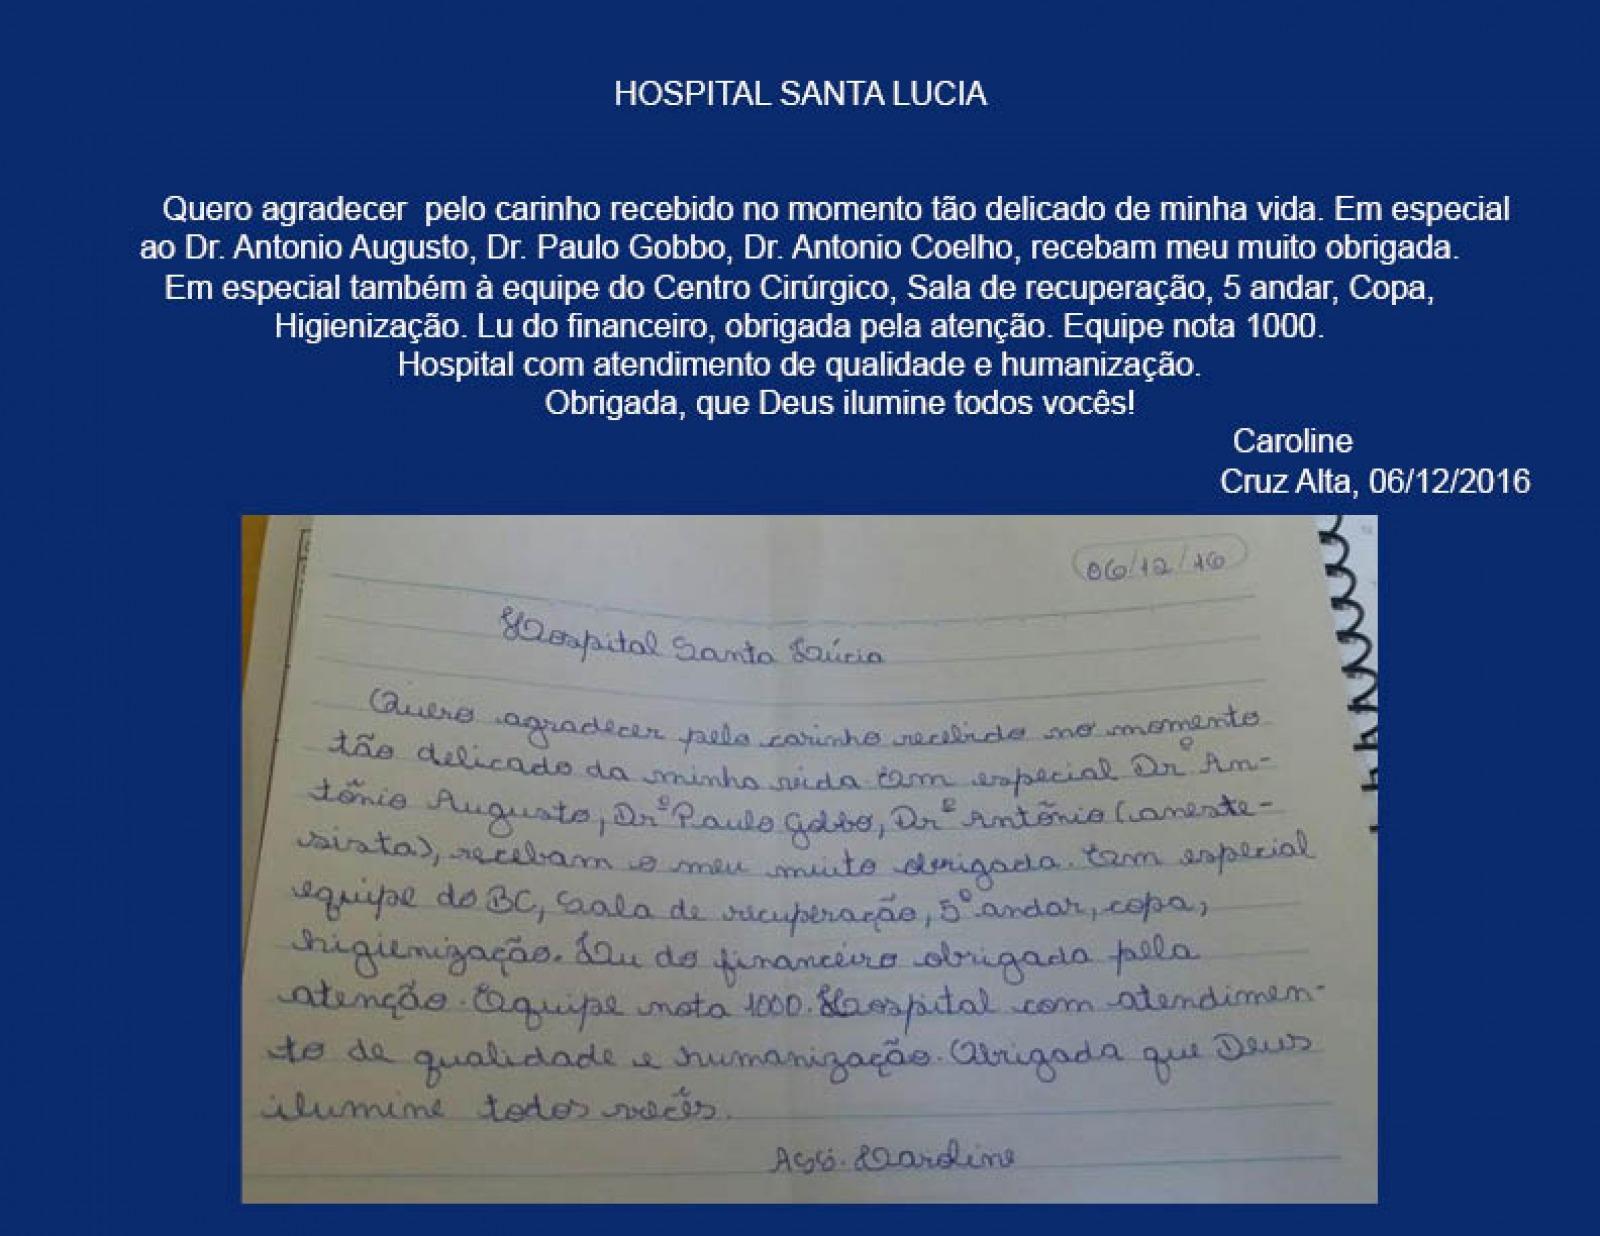 HOSPITAL SANTA LUCIA
Quero agradecer pelo carinho recebido no momento tão delicado de minha vida. Em especial
ao Dr. Antonio Augusto, Dr. Paulo Gobbo, Dr. Antonio Coelho, recebam meu muito obrigada.
Em especial também à equipe do Centro Cirúrgico, Sala de recuperação, 5 andar, Copa,
Higienização. Lu do financeiro, obrigada pela atenção. Equipe nota 1000.
Hospital com atendimento de qualidade e humanização.
Obrigada, que Deus ilumine todos vocês!
Caroline
Cruz Alta, 06/12/2016
06/12/16
Hospital Santa Lúcia
Quero agradecer pelo carinho recebido no momento
tão delicado da minha vida Em especial Drº An-
tõnio Augusto, Drº Paulo Gobbo, Drº Antõnio (aneste-
sista), recebam o meu muito obrigada. Em especial
equipe do BC, Sala de recuperação, 5º andar, copa,
higienização. Lu do financeiro obrigada pela
atenção. Equipe nota 1000. Hospital com atendimen-
to de qualidade e humanização. Obrigada que Deus
ilumine todos vocês.
Ass. Caroline